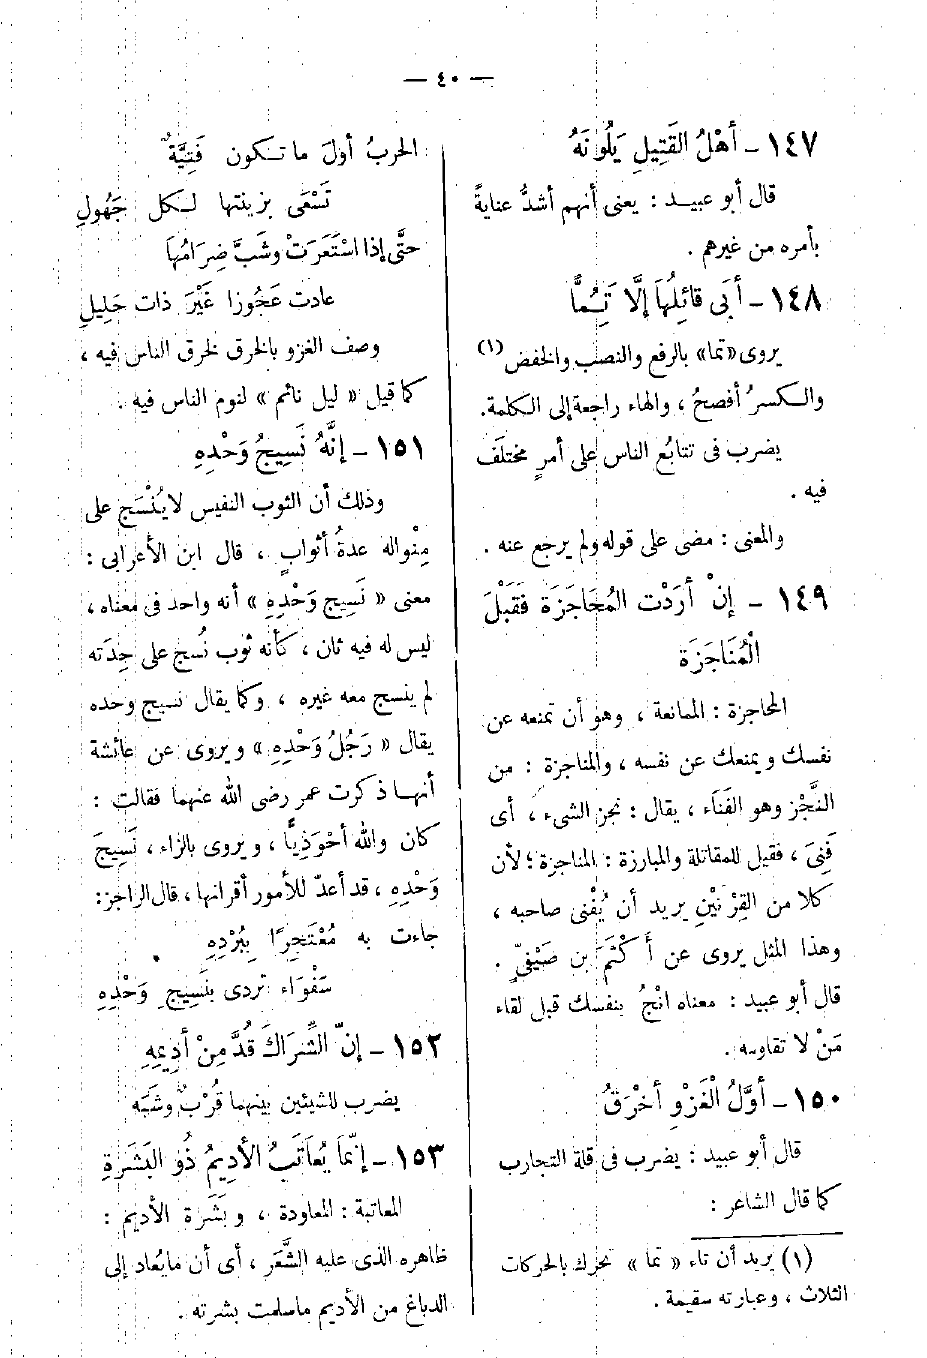 — ٤٠ —
١٤٧ - أَهْلُ القَتِيلِ يَلُونَهُ
قال أبو عبيد : يعنى أنهم أشدُّ عنايةً
بأمره من غيرهم .
١٤٨ - أَبَى قائِلُهَا إلَّا تَِـُمًّا
يروى «تما» بالرفع والنصب والخفض (١)
والكسرُ أفصحُ ، والهاء راجعة إلى الكلمة.
يضرب فى تتابُع الناس على أمرٍ مختلَف
فيه .
والمعنى : مضى على قوله ولم يرجع عنه .
١٤٩ - إنْ أرَدْتَ المُحَاجَزَةَ فَقَبْلَ
الْمُنَاجَزَة
المحاجزة : الممانعة ، وهو أن تمنعه عن
نفسك ويمنعك عن نفسه ، والمناجزة : من
النَّجْز وهو الفَنَاء ، يقال : نجز الشىء ، أى
فَنِىَ ، فقيل للمقاتلة والمبارزة : المناجزة ؛ لأن
كلا من القِرْنَيْنِ يريد أن يُفْنى صاحبه ،
وهذا المثل يروى عن أَكْثَمَ بن صَيْفىٍّ .
قال أبو عبيد : معناه انْجُ بنفسك قبل لقاء
مَنْ لا تقاومه .
١٥٠ - أوَّلُ الْغَزْوِ أخْرَقُ
قال أبو عبيد : يضرب فى قلة التجارب
كما قال الشاعر :
(١) يريد أن تاء « تما » تحرك بالحركات
الثلاث ، وعبارته سقيمة .
الحربُ أولَ ما تكون فَتِيَّةٌ
تَسْعَى بزينتها لكل جَهُولِ
حتَّى إذا اسْتَعَرَتْ وشَبَّ ضِرَامُهَا
عادت عَجُوزا غَيْرَ ذات حَلِيلِ
وصف الغزو بالخرق لخرق الناس فيه ،
كما قيل « ليل نائم » لنوم الناس فيه .
١٥١ - إنَّهُ نَسِيجُ وَحْدِهِ
وذلك أن الثوب النفيس لا يُنْسَج على
مِنْواله عدةُ أثوابٍ ، قال ابن الأعرابى :
معنى « نَسِيج وَحْدِهِ » أنه واحد فى معناه ،
ليس له فيه ثان ، كأنه ثوب نُسج على حِدَته
لم ينسج معه غيره ، وكما يقال نسيج وحده
يقال « رَجُلُ وَحْدِهِ » ويروى عن عائشة
أنها ذكرت عمر رضى الله عنهما فقالت :
كان والله أحْوَذِيًّا ، ويروى بالزاء ، نَسِيجَ
وَحْدِهِ ، قد أعدّ للأمور أقرانها ، قال الراجز:
جاءت به مُعْتَجِرًا بِبُرْدِهِ
سَفْوَاء تردى بنَسِيجِ وَحْدِهِ
١٥٢ - إنّ الشِّرَاكَ قُدَّ مِنْ أدِيمِهِ
يضرب للشيئين بينهما قُرْبٌ وشَبَه
١٥٣ - إنّمَا يُعَاتَبُ الأدِيمُ ذُو البَشَرَةِ
المعاتبة : المعاودة ، وبَشَرَة الأديم :
ظاهره الذى عليه الشَّعَر ، أى أن ما يُعاد إلى
الدباغ من الأديم ما سلمت بشرته .